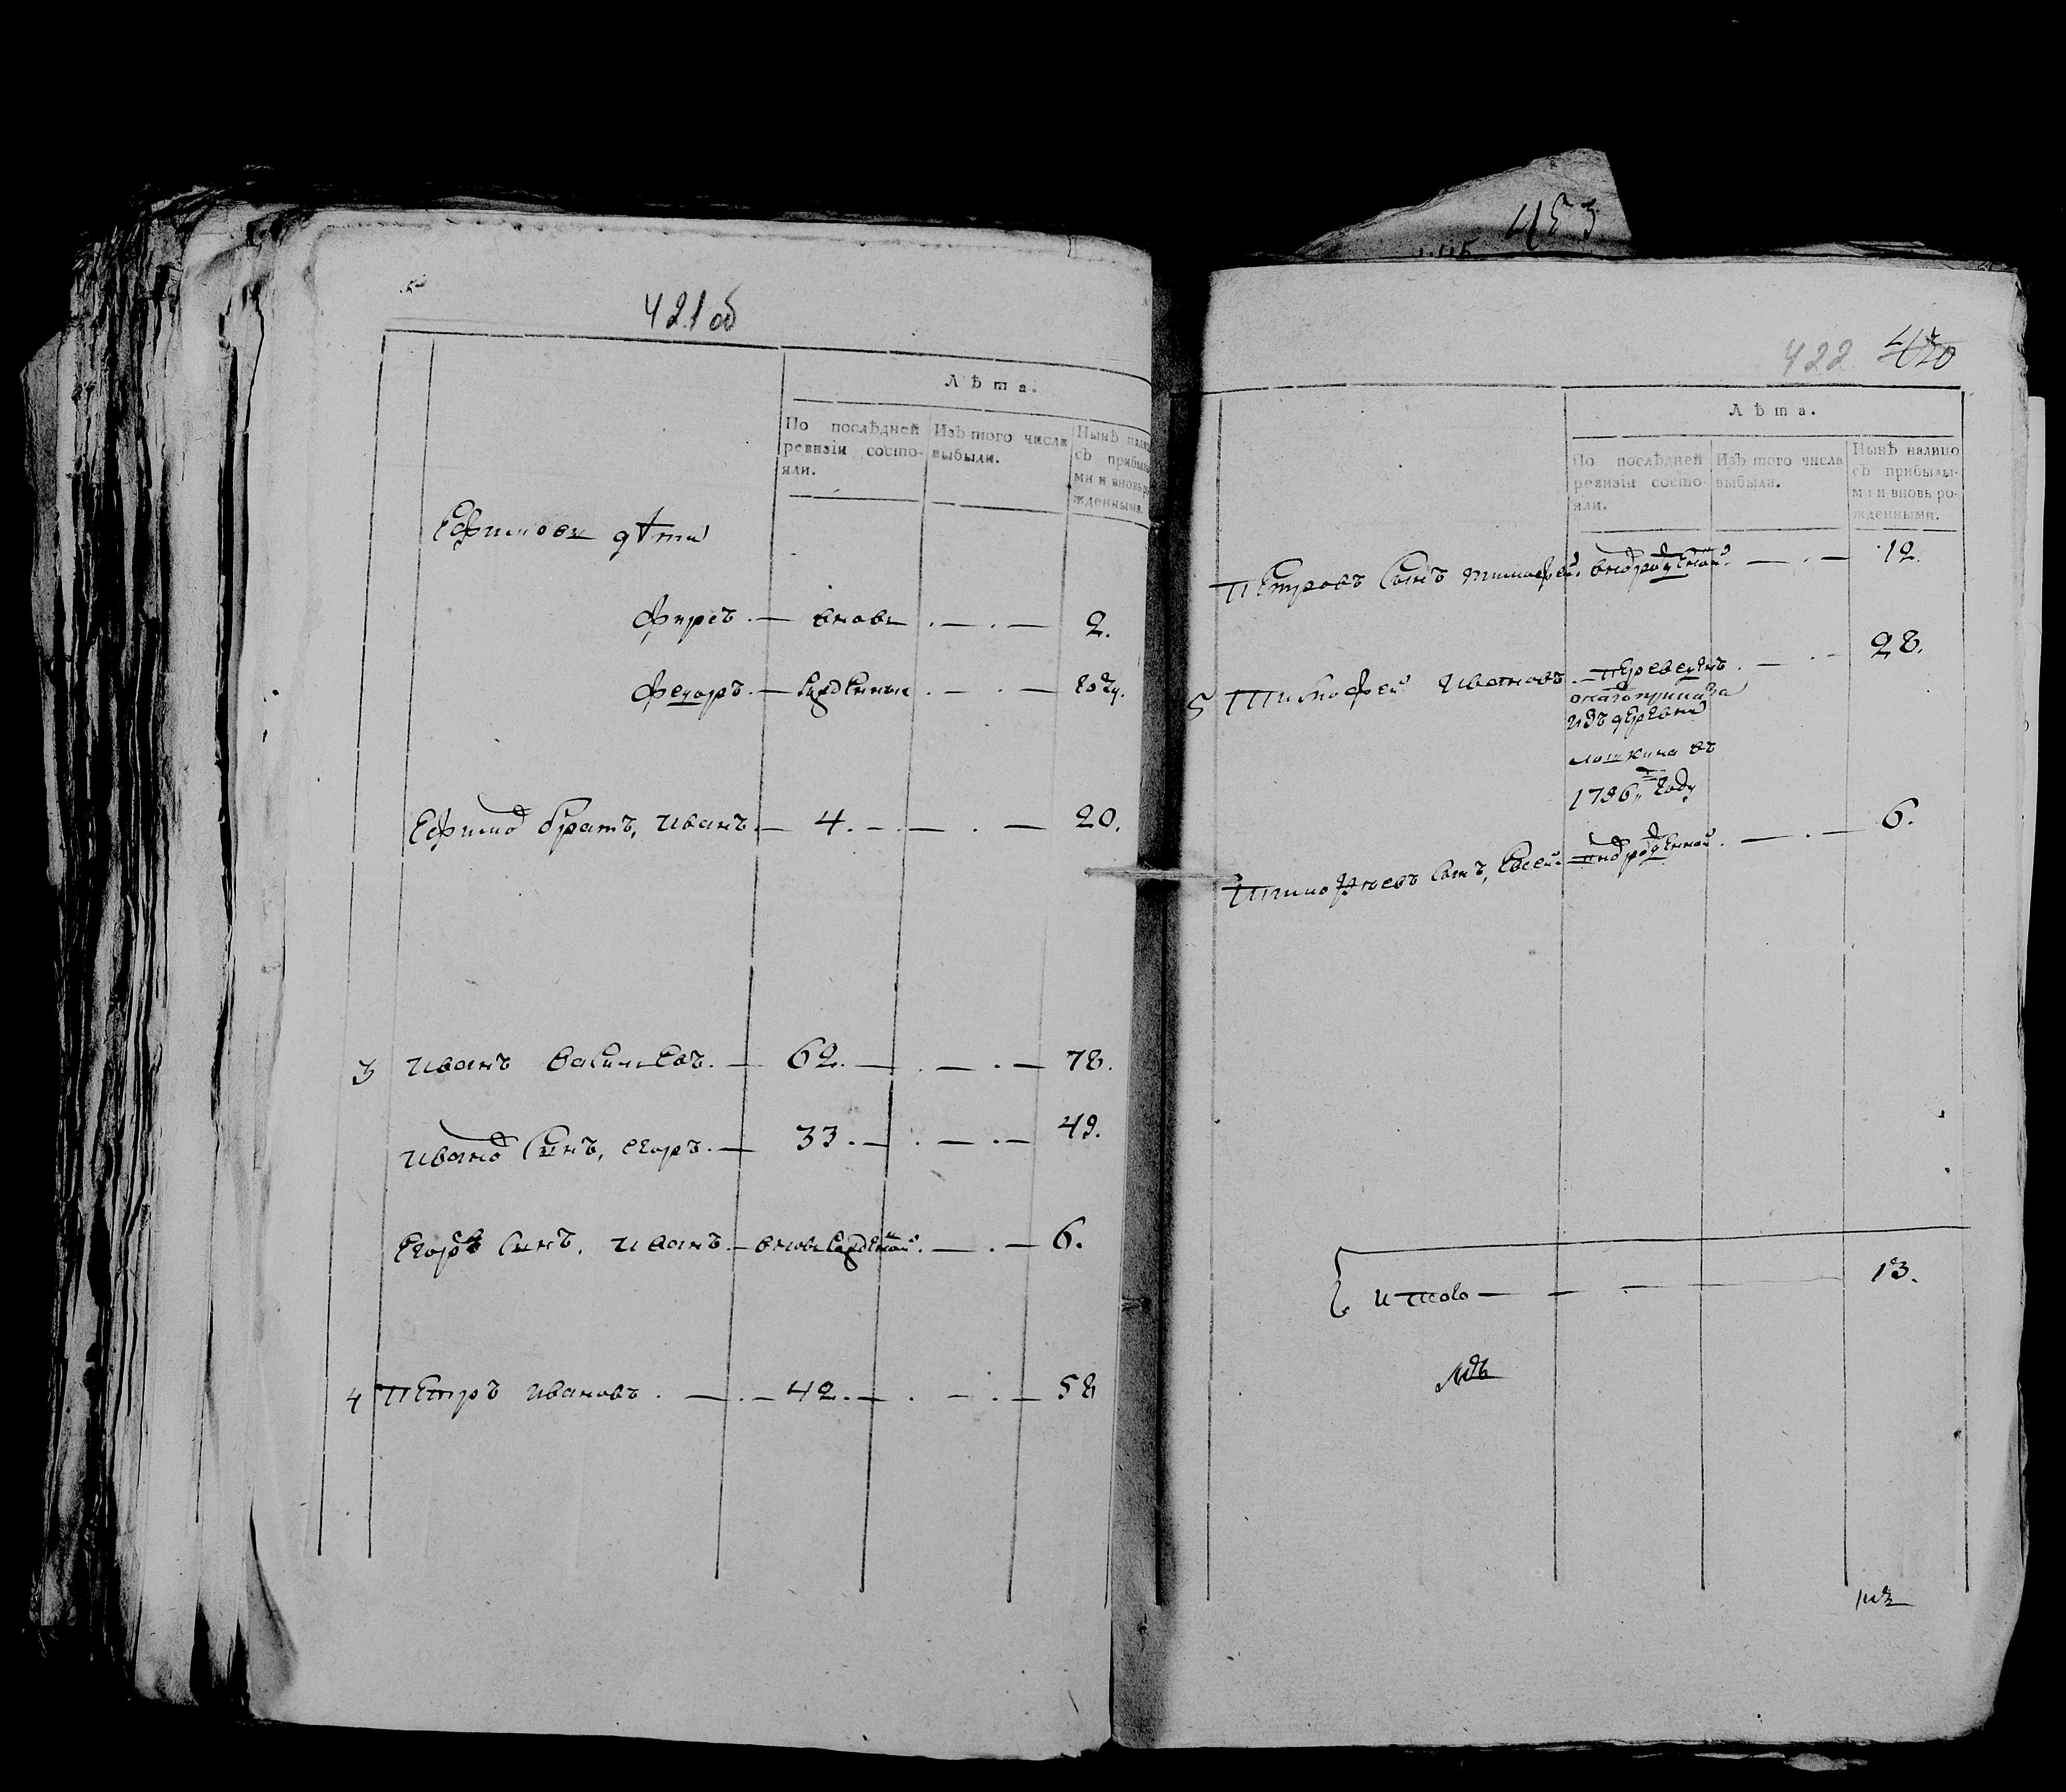 421 об
Лѣта.
По послѣдней ревизіи состояли.
Изъ того числа выбыли.
Нынѣ нали
съ прибылы
ми и вновь ро
жденными.
Ефимовы дѣти
Фирсъ — вновь — 2.
Федоръ — — году.
Ефимов братъ, Иванъ — 4. — 20.
3 Иванъ Васильевъ. — 62. — 78.
Иванов Сынъ, Егоръ. — 33. — 49.
Егоровъ Сынъ, Иванъ. — вновь — 6.
4 Петръ Ивановъ. — 42. — 58
453
422 420
Лѣта.
По послѣдней ревизіи состояли.
Изъ того числа выбыли.
Нынѣ налицо
съ прибылы-
ми и вновь ро-
жденными.
Петровъ Сынъ Тимофей. вновь рожденной. — 12.
5 Тимофей Ивановъ. — переведенъ — 28.
изъ деревни
лошкина въ
1796 году
Тимофеевъ Сынъ, Евсей — вновь рожденной. — 6.
Итого — 13.